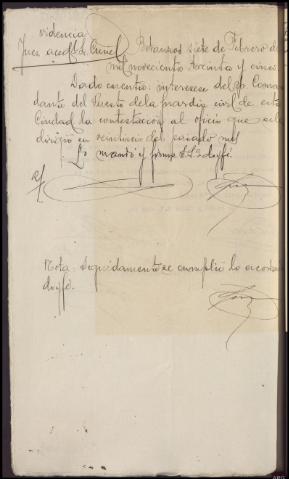 videncia
Juez accal Sr. Betanzos siete de Febrero de
mil novecientos treinta y cinco
Dada cuenta: interesese del Sr. Coman
dante del Puesto de la Guardia civil de esta
Ciudad la contestación al oficio que se le
dirigió en veintiocho del pasado mes
Lo mandó y firma S.S. doy fé.
Nota.- Seguidamente se cumplió lo acorda
doy fé.